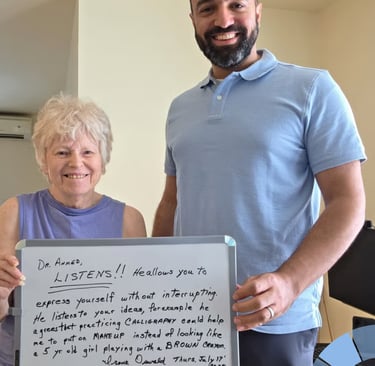 Dr. Ahmed,
LISTENS!! He allows you to
express yourself without interrupting.
He listens to your ideas, forexample he
agrees that practicing CALLIGRAPHY could help
me to put on MAKEUP instead of looking like
a 5 yr old girl playing with a BROWN CRAYON.
Oswald Thurs, July 17'